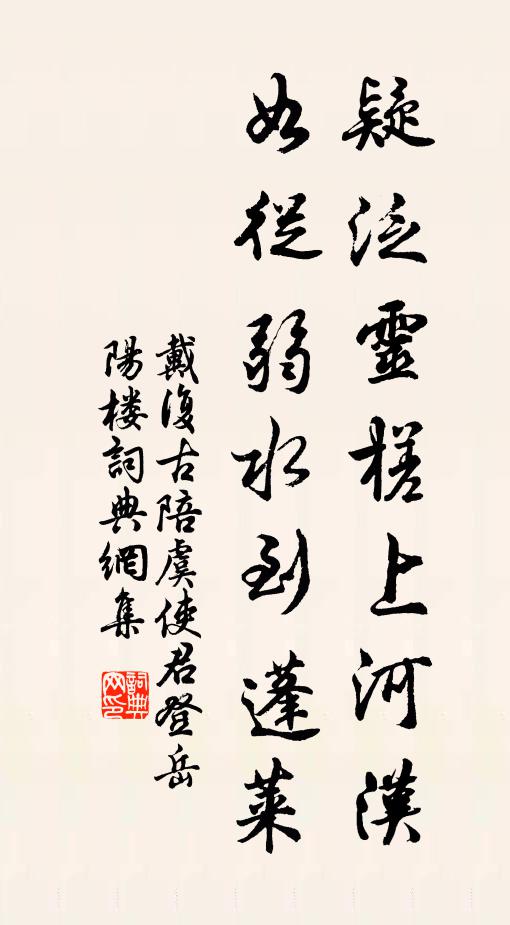 疑泛靈槎上河漢
如從弱水到蓬萊
戴復古陪虞使君登岳
陽楼詞典網集
詞典
网印